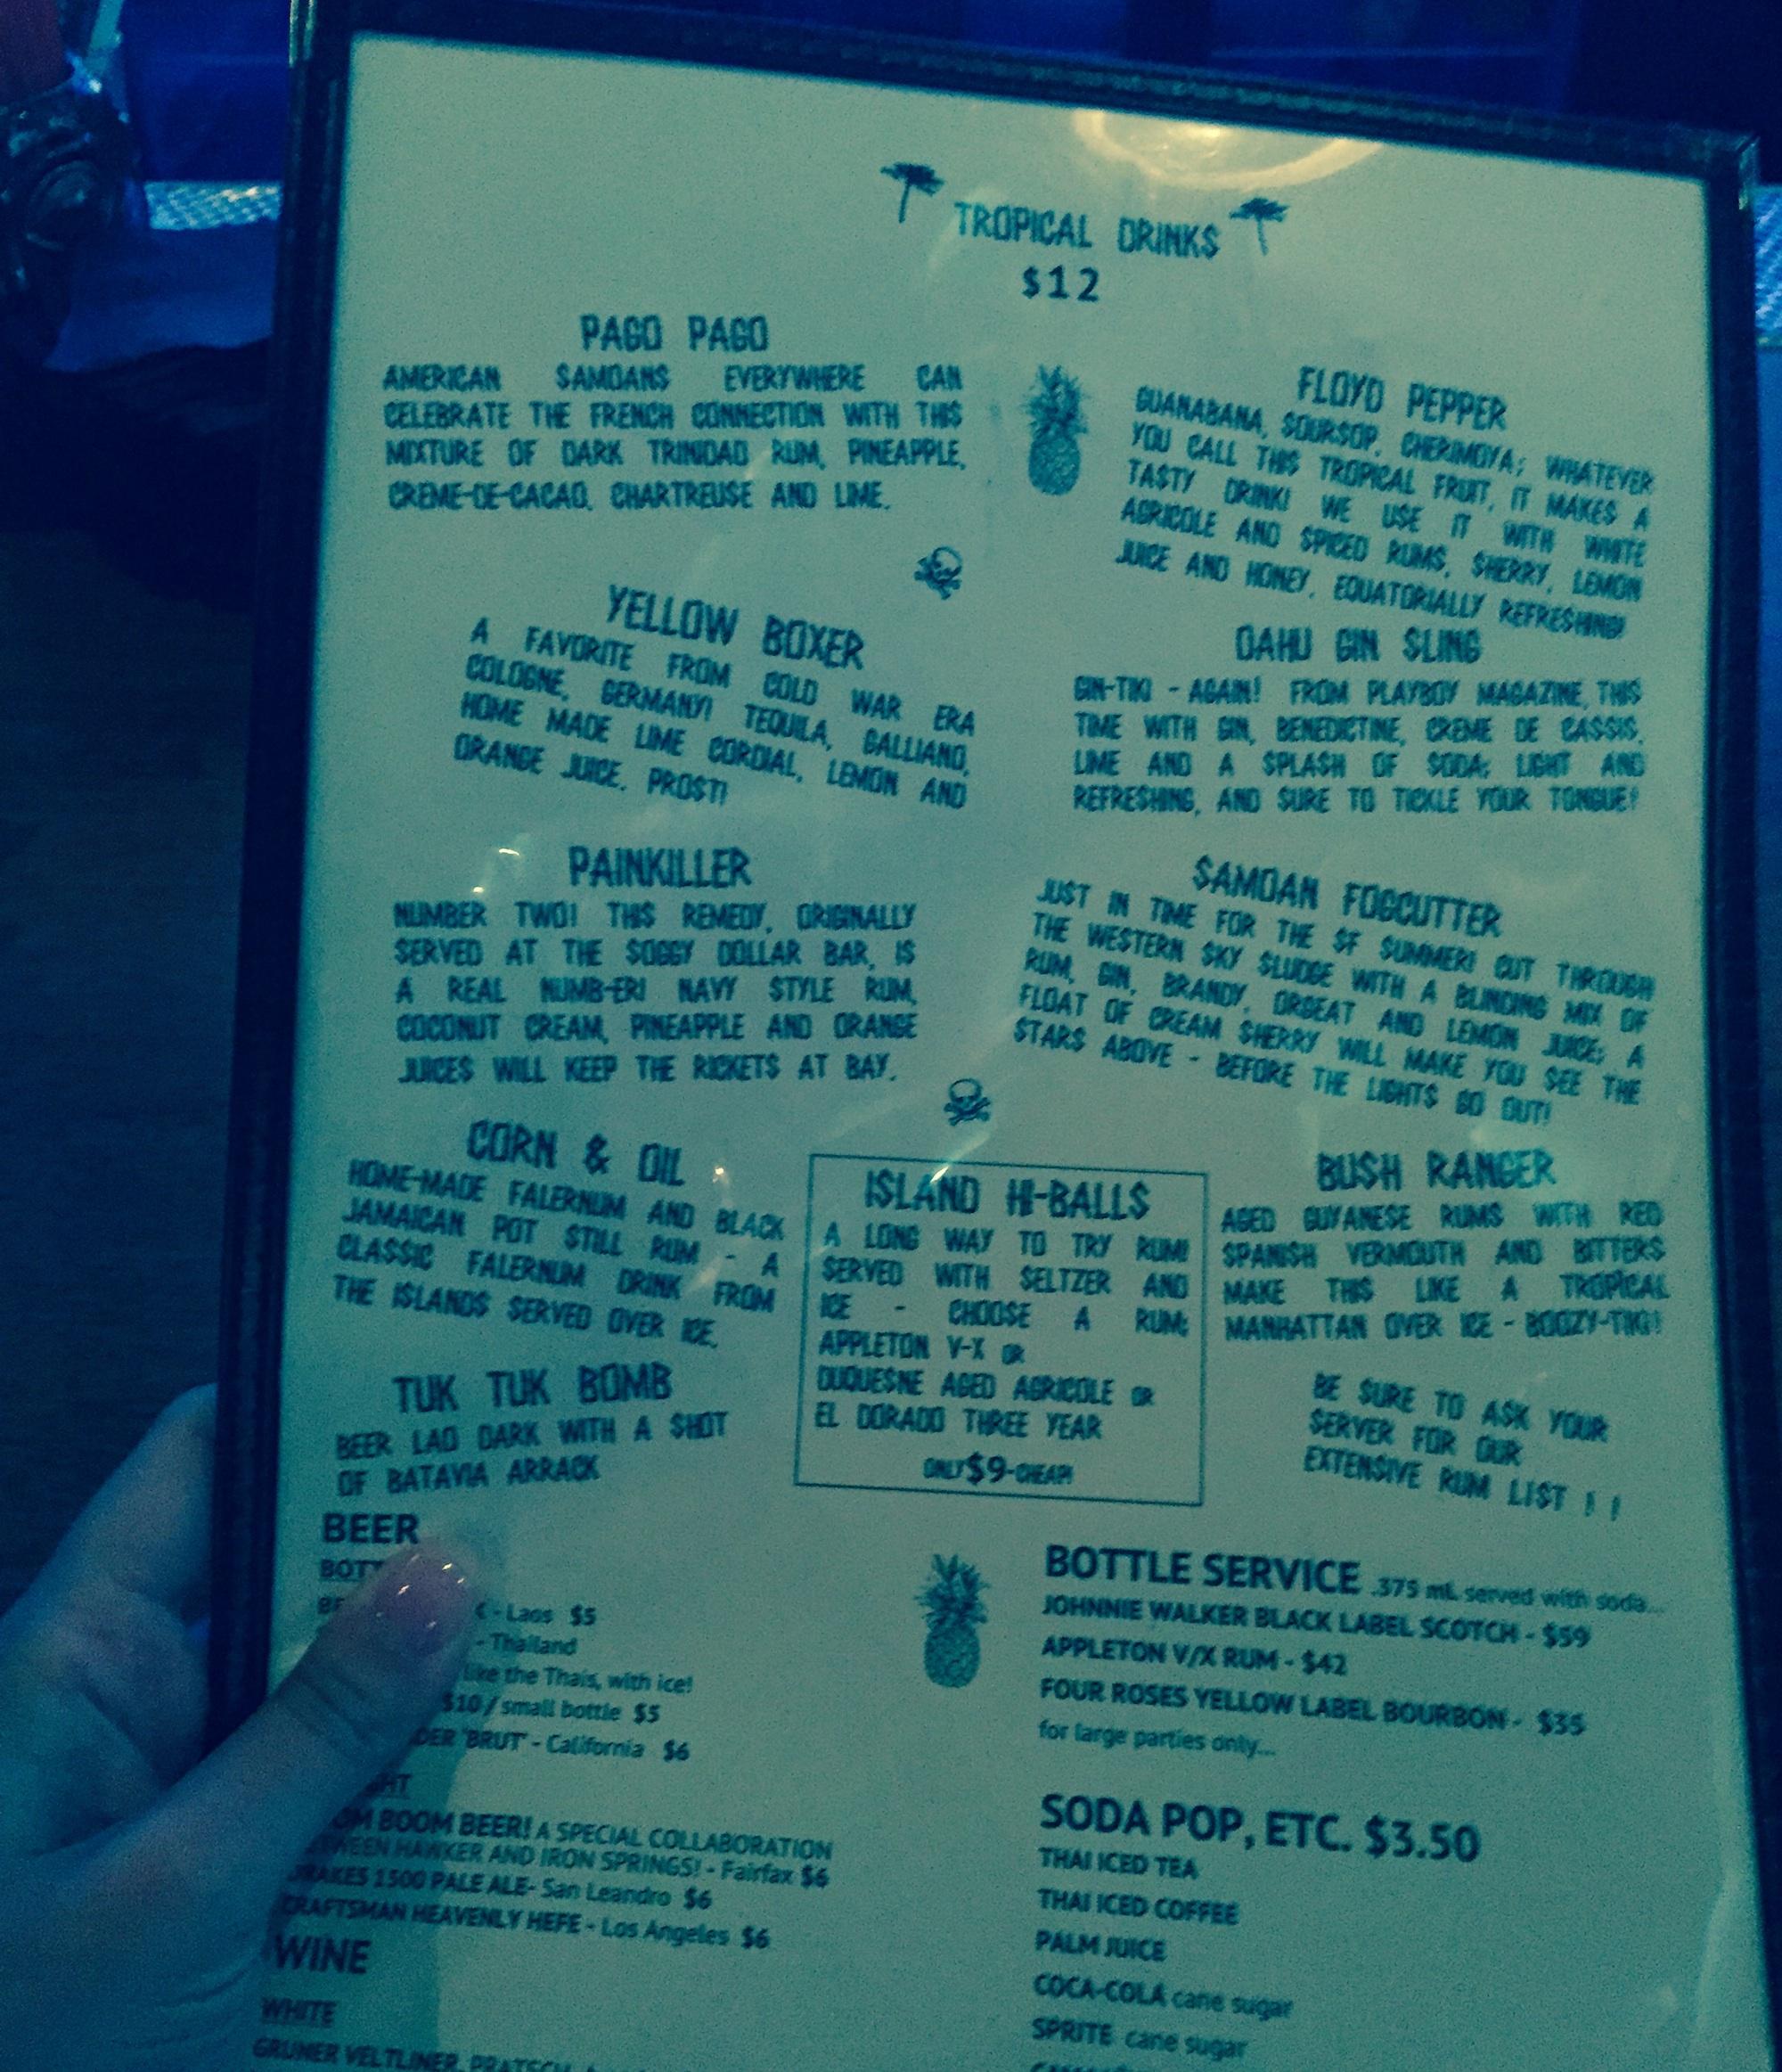 TROPICAL DRINKS
$12
PAGO PAGO
AMERICAN SAMOANS EVERYWHERE CAN
CELEBRATE THE FRENCH CONNECTION WITH THIS
MIXTURE OF DARK TRINIDAD RUM, PINEAPPLE,
CREME-DE-CACAO, CHARTREUSE AND LIME.
FLOYD PEPPER
GUANABANA, SOURSOP, CHERIMOYA; WHATEVER
YOU CALL THIS TROPICAL FRUIT, IT MAKES A
TASTY DRINK! WE USE IT WITH WHITE
AGRICOLE AND SPICED RUMS, SHERRY, LEMON
JUICE AND HONEY. EQUATORIALLY REFRESHING!
YELLOW BOXER
A FAVORITE FROM COLD WAR ERA
COLOGNE, GERMANY! TEQUILA, GALLIANO,
HOME MADE LIME CORDIAL, LEMON AND
ORANGE JUICE. PROST!
OAHU GIN SLING
GIN-TIKI - AGAIN! FROM PLAYBOY MAGAZINE, THIS
TIME WITH GIN, BENEDICTINE, CREME DE CASSIS,
LIME AND A SPLASH OF SODA; LIGHT AND
REFRESHING, AND SURE TO TICKLE YOUR TONGUE!
PAINKILLER
NUMBER TWO! THIS REMEDY, ORIGINALLY
SERVED AT THE SOGGY DOLLAR BAR, IS
A REAL NUMB-ER! NAVY STYLE RUM,
COCONUT CREAM, PINEAPPLE AND ORANGE
JUICES WILL KEEP THE RICKETS AT BAY.
SAMOAN FOGCUTTER
JUST IN TIME FOR THE SF SUMMER! CUT THROUGH
THE WESTERN SKY SLUDGE WITH A BLINDING MIX OF
RUM, GIN, BRANDY, ORGEAT AND LEMON JUICE; A
FLOAT OF CREAM SHERRY WILL MAKE YOU SEE THE
STARS ABOVE - BEFORE THE LIGHTS GO OUT!
CORN & OIL
HOME-MADE FALERNUM AND BLACK
JAMAICAN POT STILL RUM - A
CLASSIC FALERNUM DRINK FROM
THE ISLANDS SERVED OVER ICE.
ISLAND HI-BALLS
A LONG WAY TO TRY RUM!
SERVED WITH SELTZER AND
ICE - CHOOSE A RUM:
APPLETON V-X OR
DUQUESNE AGED AGRICOLE OR
EL DORADO THREE YEAR
ONLY $9-CHEAP!
BUSH RANGER
AGED GUYANESE RUMS WITH RED
SPANISH VERMOUTH AND BITTERS
MAKE THIS LIKE A TROPICAL
MANHATTAN OVER ICE - BOOZY-TIKI!
TUK TUK BOMB
BEER LAO DARK WITH A SHOT
OF BATAVIA ARRACK
BE SURE TO ASK YOUR
SERVER FOR OUR
EXTENSIVE RUM LIST ! !
BEER
BOTT
- Laos $5
- Thailand
like the Thais, with ice!
$10 / small bottle $5
DER 'BRUT' - California $6
HT
OM BOOM BEER! A SPECIAL COLLABORATION
WEEN HAWKER AND IRON SPRINGS! - Fairfax $6
DRAKES 1500 PALE ALE- San Leandro $6
CRAFTSMAN HEAVENLY HEFE - Los Angeles $6
WINE
WHITE
GRUNER VELTLINER,
BOTTLE SERVICE .375 mL served with soda...
JOHNNIE WALKER BLACK LABEL SCOTCH - $59
APPLETON V/X RUM - $42
FOUR ROSES YELLOW LABEL BOURBON - $35
for large parties only...
SODA POP, ETC. $3.50
THAI ICED TEA
THAI ICED COFFEE
PALM JUICE
COCA-COLA cane sugar
SPRITE cane sugar